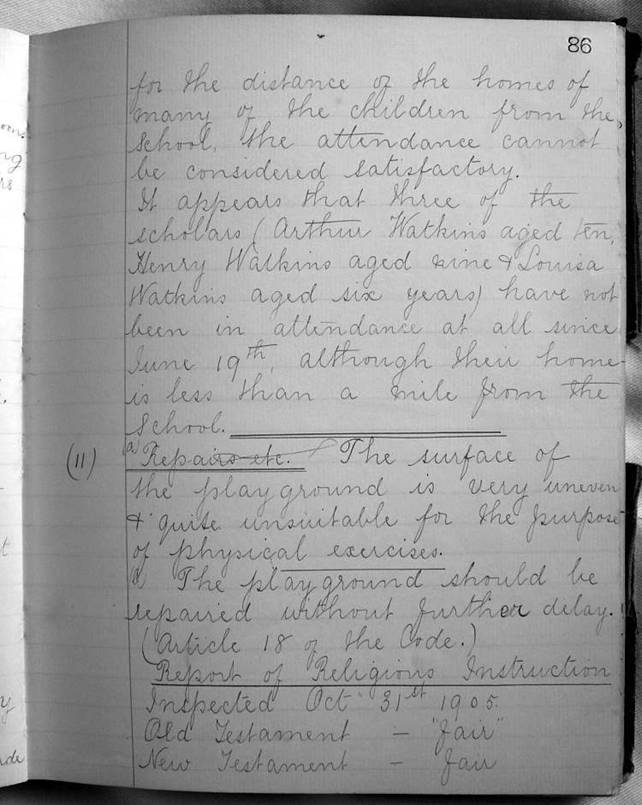 86
for the distance of the homes of
many of the children from the
school, the attendance cannot
be considered satisfactory.
It appears that three of the
scholars (Arthur Watkins aged ten,
Henry Watkins aged nine & Louisa
Watkins aged six years) have not
been in attendance at all since
June 19th, although their home
is less than a mile from the
School.
(11) a) Repairs etc. The surface of
the playground is very uneven
& quite unsuitable for the purpose
of physical exercises.
The playground should be
repaired without further delay.
(Article 18 of the Code.)
Report of Religious Instruction
Inspected Oct 31st 1905.
Old Testament - "Fair"
New Testament - Fair